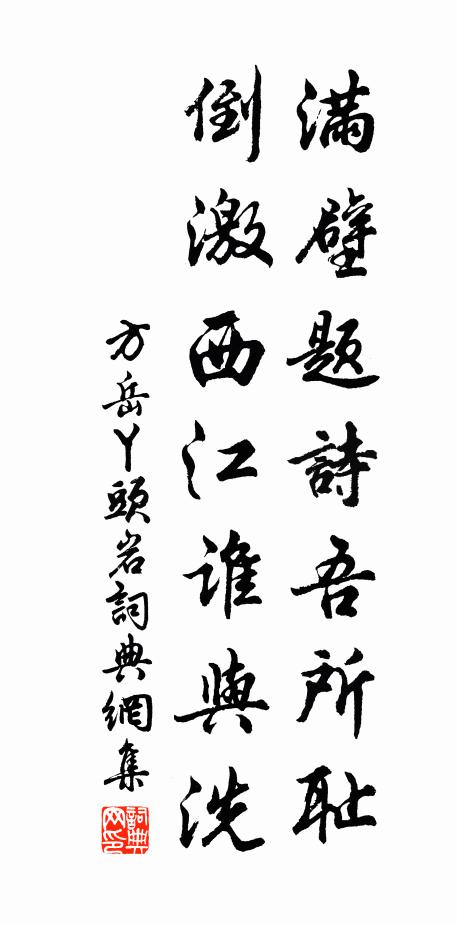 滿壁題詩吾所耻
倒激西江誰與洗
方岳丫頭岩詞典網集
詞典網印